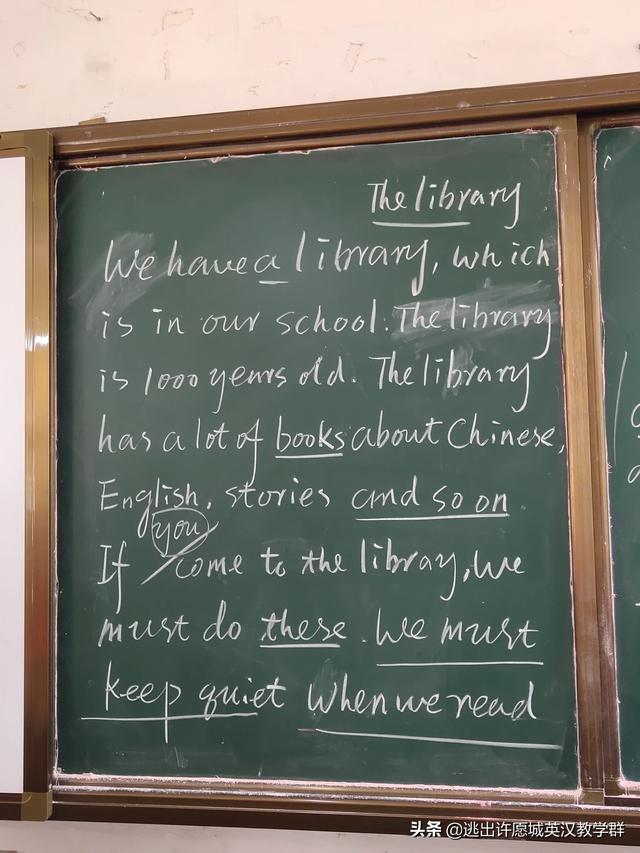 The library
We have a library, which
is in our school. The library
is 1000 years old. The library
has a lot of books about Chinese,
English, stories and so on.
you
If come to the libray, we
must do these. We must
keep quiet when we read
头条 @逃出许愿城英汉教学群